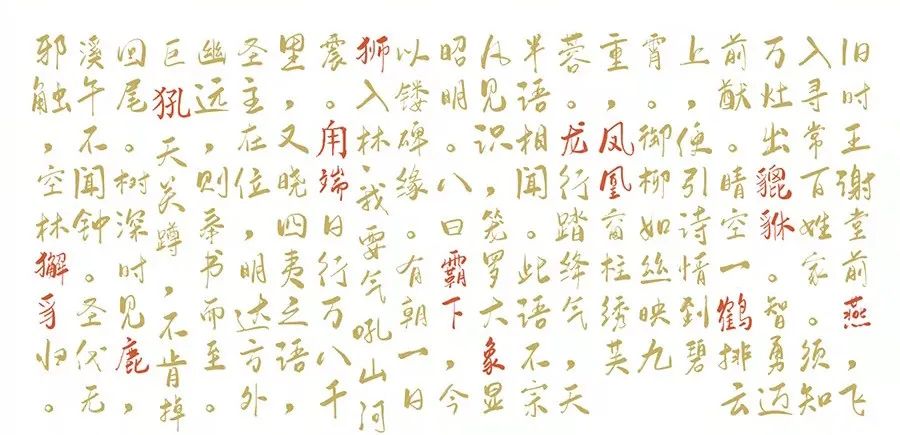 旧时王谢堂前燕，飞
入寻常百姓家。须知
万灶出貔貅。智勇迈
前猷。晴空一鹤排云
上，便引诗情到碧
霄。御柳如丝映九
重，凤凰窗柱绣芙
蓉。龙行踏绛气天
半语相闻。此语不宗
及见识，笼罗大象显
昭明。八曰霸下，今
以镂碑缘。有朝一日
狮入林，我要气吼山河
震。甪端日行万八千
里，又晓四夷之语，
圣主在位明达方外
幽远，则奉书而至。
巨犼天关蹲，不肯掉
回尾。树深时见鹿，
溪午不闻钟。圣代无
邪触，空林獬豸归。